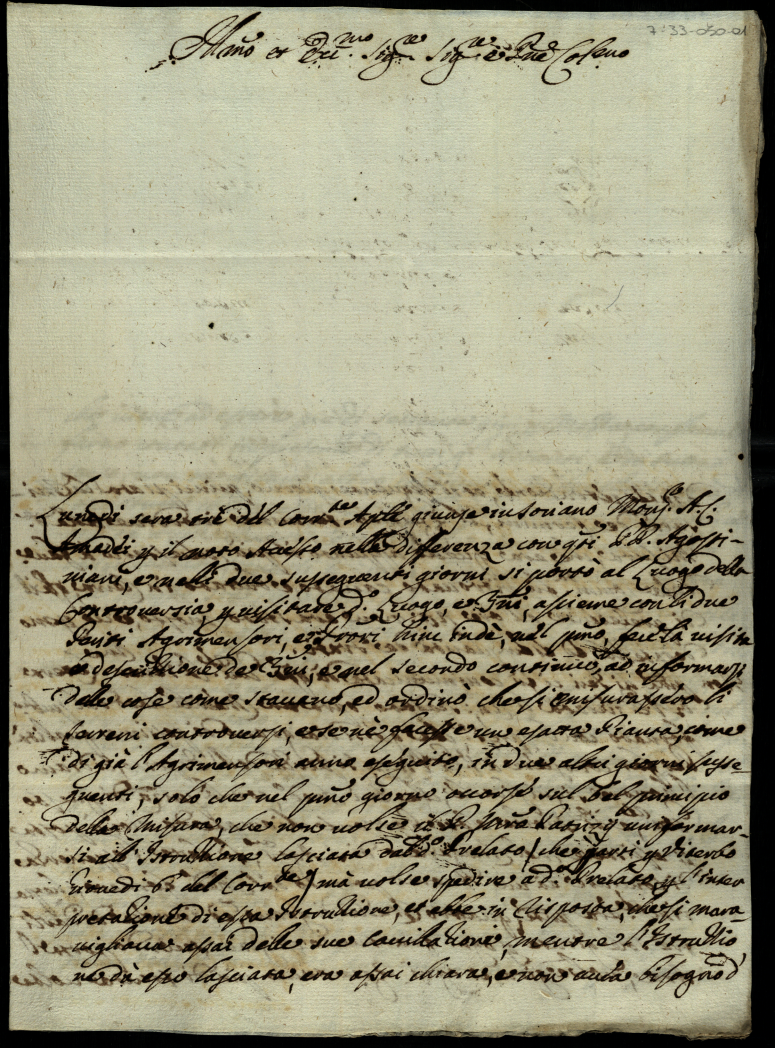 7-33-050-01
Illmo et Eccmo Sigre Sigre e Pne Colmo
Lunedi sera tre del Corrte Aple giunse in Soriano Monsre A. C.
Amadei p il noto Accesso nelle differenze con qsti PP. Agosti-
niani, e nelli due susseguenti giorni si portò al Luogo della
Controversia, p visitare do Luogo, e assieme con li due
Periti Agrimensori, e Prori hinc inde, nel pmo, fece la visita
e descrittione de e nel secondo continuò ad informarsi
delle cose come stavano, ed ordinò che si misurassero li
terreni controversi, e se ne facesse una esatta Pianta, come
di già l'Agrimensori anno eseguito, in due altri giorni susse-
guenti solo che nel pmo giorno occorse sul bel principio
della Misura, che non volse il P. uniformar-
si all'Istruttione lasciata dal do Prelato (che partì p Viterbo
Giovedi 6 del Corrte) mà volse spedire ad do Prelato, p l'inter
pretatione di essa Istruttione, et ebbe in Risposta, che si mara
vigliava assai delle sue Cavillationi, mentre l'Istruttio
ne da esso lasciata, era assai chiara, e non avea bisogno d'